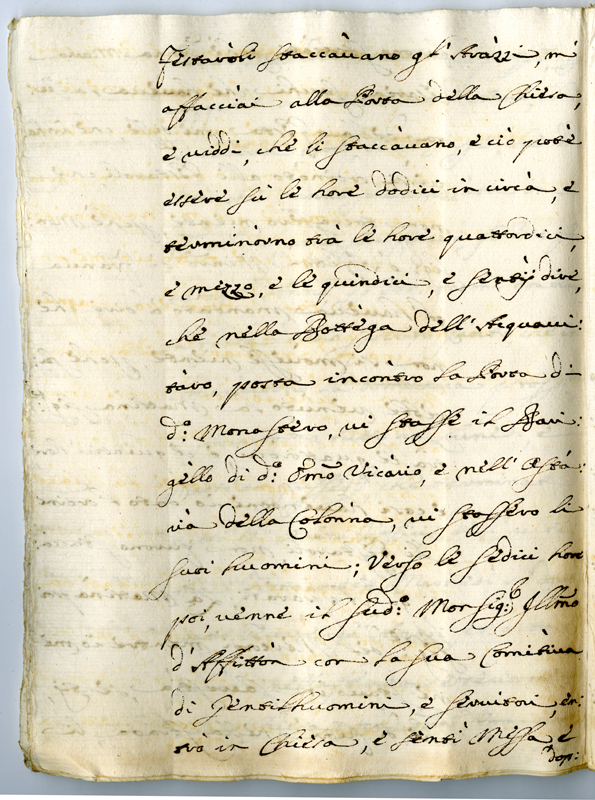 Festaroli staccàvano gl' Aràzzi, mi
affacciài alla Porta della Chiesa,
e viddi, che li staccàvano, e ciò potè
essere sù le hore dodici in circà, e
terminòrno trà le hore quattordici,
e mezzo, e le quindici, e sentij dire,
che nella Bottèga dell' Acquavi:
tàro, posta incontro la Porta di
d.º Monastero, vi stasse il Bari:
gèllo di d.º Emõ Vicàrio, e nell' Ostà:
rìa della Colonna, vi stassero li
suoi huomini; Verso le sedici hore
poi, venne il sud.º Monsig.r Illmõ
d' Afflitto con la sua Comitiva
di Gentilhuomini, e servitori, en:
trò in Chiesa, e sentì Messa, e
dop: